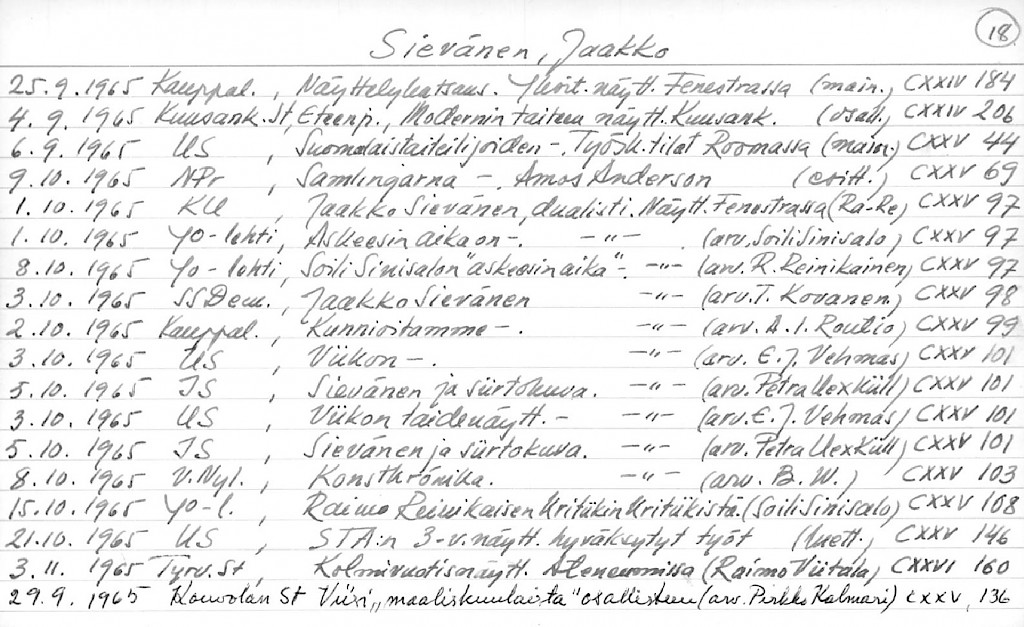 18
Sievänen, Jaakko
25.9.1965 Kauppal., Näyttelykatsaus. Yksit. näytt. Fenestrassa (main.) CXXIV 184
4.9.1965 Kuusank. St, Eteenp., Modernin taiteen näytt. Kuusank. (osall.) CXXIV 206
6.9.1965 US, Suomalaistaiteilijoiden -. Työsk.tilat Roomassa (main.) CXXV 44
9.10.1965 NPr, Samlingarna -. Amos Anderson (esitt.) CXXV 69
1.10.1965 KU, Jaakko Sievänen, dualisti. Näytt. Fenestrassa (Ra-Re) CXXV 97
1.10.1965 YO-lehti, Askeesin aika on -. -"- (arv. Soili Sinisalo) CXXV 97
8.10.1965 Yo-lehti, Soili Sinisalon "askeesin aika" -. -"- (arv. R. Reinikainen) CXXV 97
3.10.1965 SSDem., Jaakko Sievänen -"- (arv. T. Kovanen) CXXV 98
2.10.1965 Kauppal., Kunnioitamme -. -"- (arv. A. I. Routio) CXXV 99
3.10.1965 US, Viikon -. -"- (arv. E. J. Vehmas) CXXV 101
5.10.1965 IS, Sievänen ja siirtokuva. -"- (arv. Petra Uexküll) CXXV 101
3.10.1965 US, Viikon taidenäytt. - -"- (arv. E. J. Vehmas) CXXV 101
5.10.1965 IS, Sievänen ja siirtokuva. -"- (arv. Petra Uexküll) CXXV 101
8.10.1965 V.Nyl., Konstkrönika. -"- (arv. B. W.) CXXV 103
15.10.1965 Yo-l., Raimo Reinikaisen kritiikin kritiikistä. (Soili Sinisalo) CXXV 108
21.10.1965 US, STA:n 3-v. näytt. hyväksytyt työt (luett.) CXXV 146
3.11.1965 Tyrv. St, Kolmivuotisnäytt. Ateneumissa (Raimo Viitala) CXXVI 160
29.9.1965 Kouvolan St Viisi "maaliskuulaista" osallisteu (arv. Pirkko Kalmari) CXXV, 136